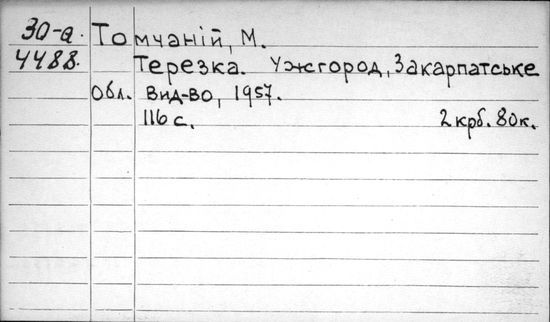 30-а Томчаній, М.
4488. Терезка. Ужгород, Закарпатське
Обл. Вид-во, 1957.
116 с. 2 крб. 80к.